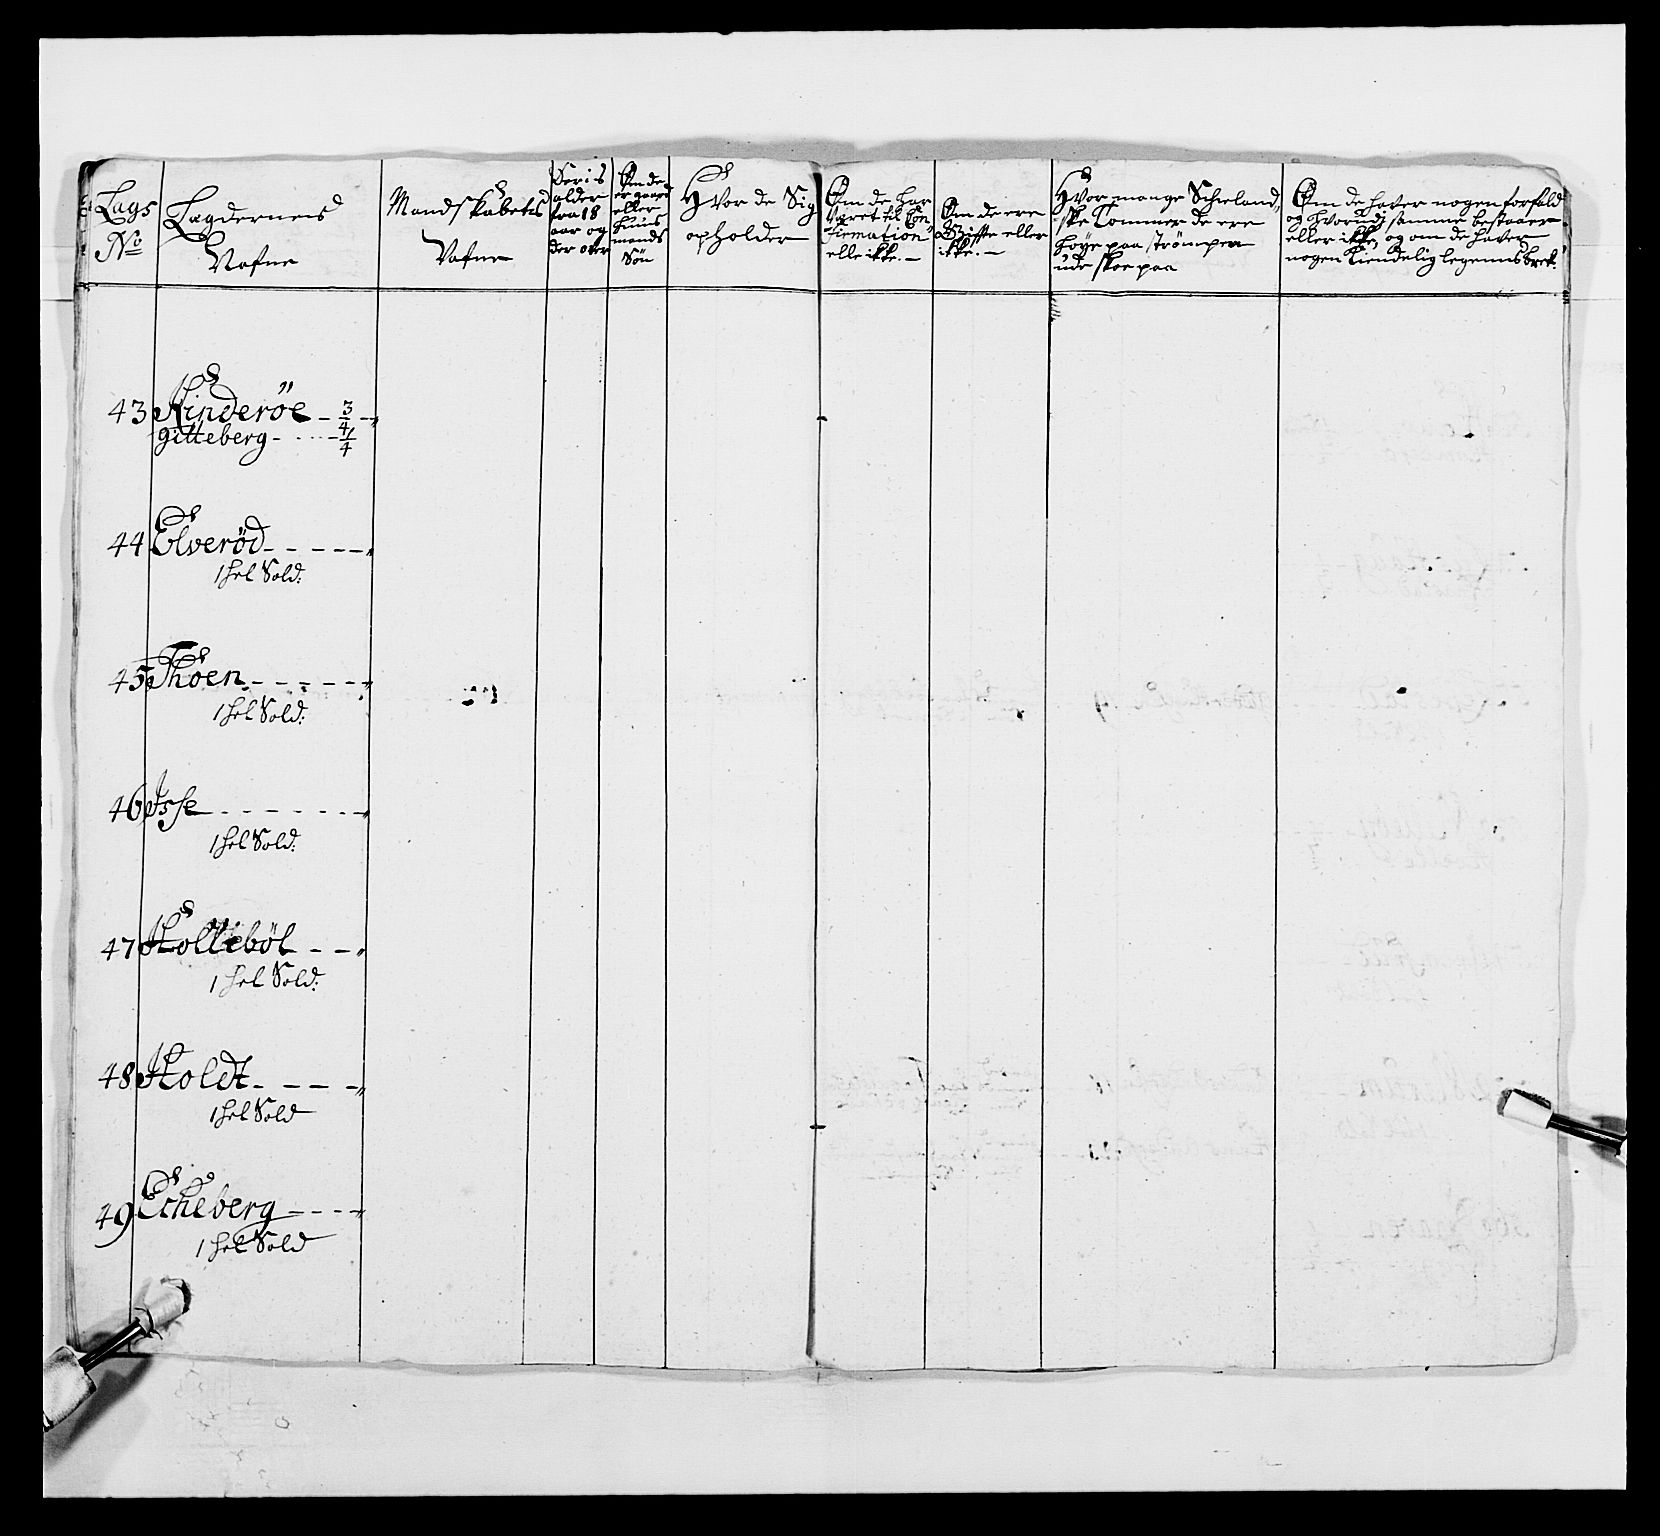 Lags
No
Lagdernes
Nafne
Mandskabetes
Nafne
Deris
alder
fra 18
aar og
der over
Om de
er gaard
eller
huus
mands
Søn
Hvor de Sig
opholder
Om de har
været til Con
firmation
elle ikke.
Om de ere
Gifte eller
ikke.
Hvor mange Schieland,,
ske Tommer de ere
høye paa strømper
ude skoe paa
Om de haver nogen forfald
og hvorudj samme bestaaer
eller ikke, og om de haver
nogen Kiendelig legems brek.
43 Kinderöe - 3/4 -
Gitteberg - - - - 1/4
44 Elveröd - - - - -
1 hel Sold:
45 Thoen - - - - - -
1 hel Sold:
46 Isse - - - - - - -
1 hel Sold:
47 Holleböl - - -
1 hel Sold:
48 Holdt - - - -
1 hel Sold
49 Echeberg - - - -
1 hel Sold